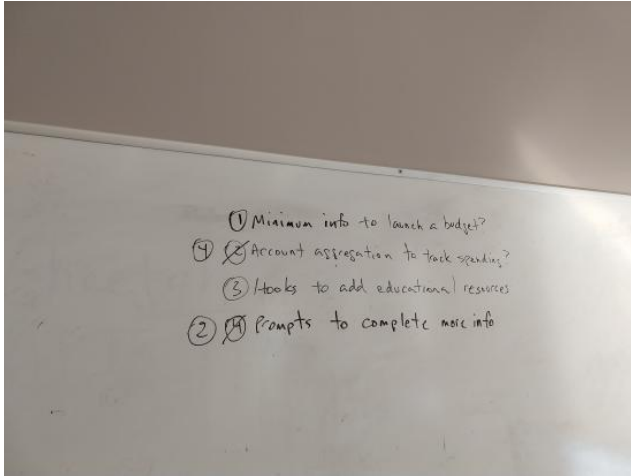 ① Minimum info to launch a budget?
④ ② Account aggregation to track spending?
③ Hooks to add educational resources
② ④ Prompts to complete more info